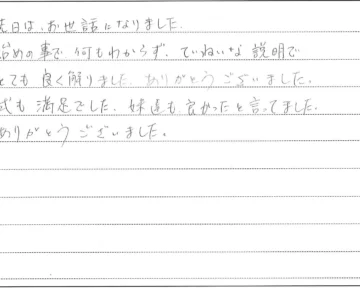 先日は、お世話になりました。
始めの事で何もわからず、ていねいな説明で
とても良く解りました。ありがとうございました。
式も満足でした。妹達も良かったと言ってました。
ありがとうございました。